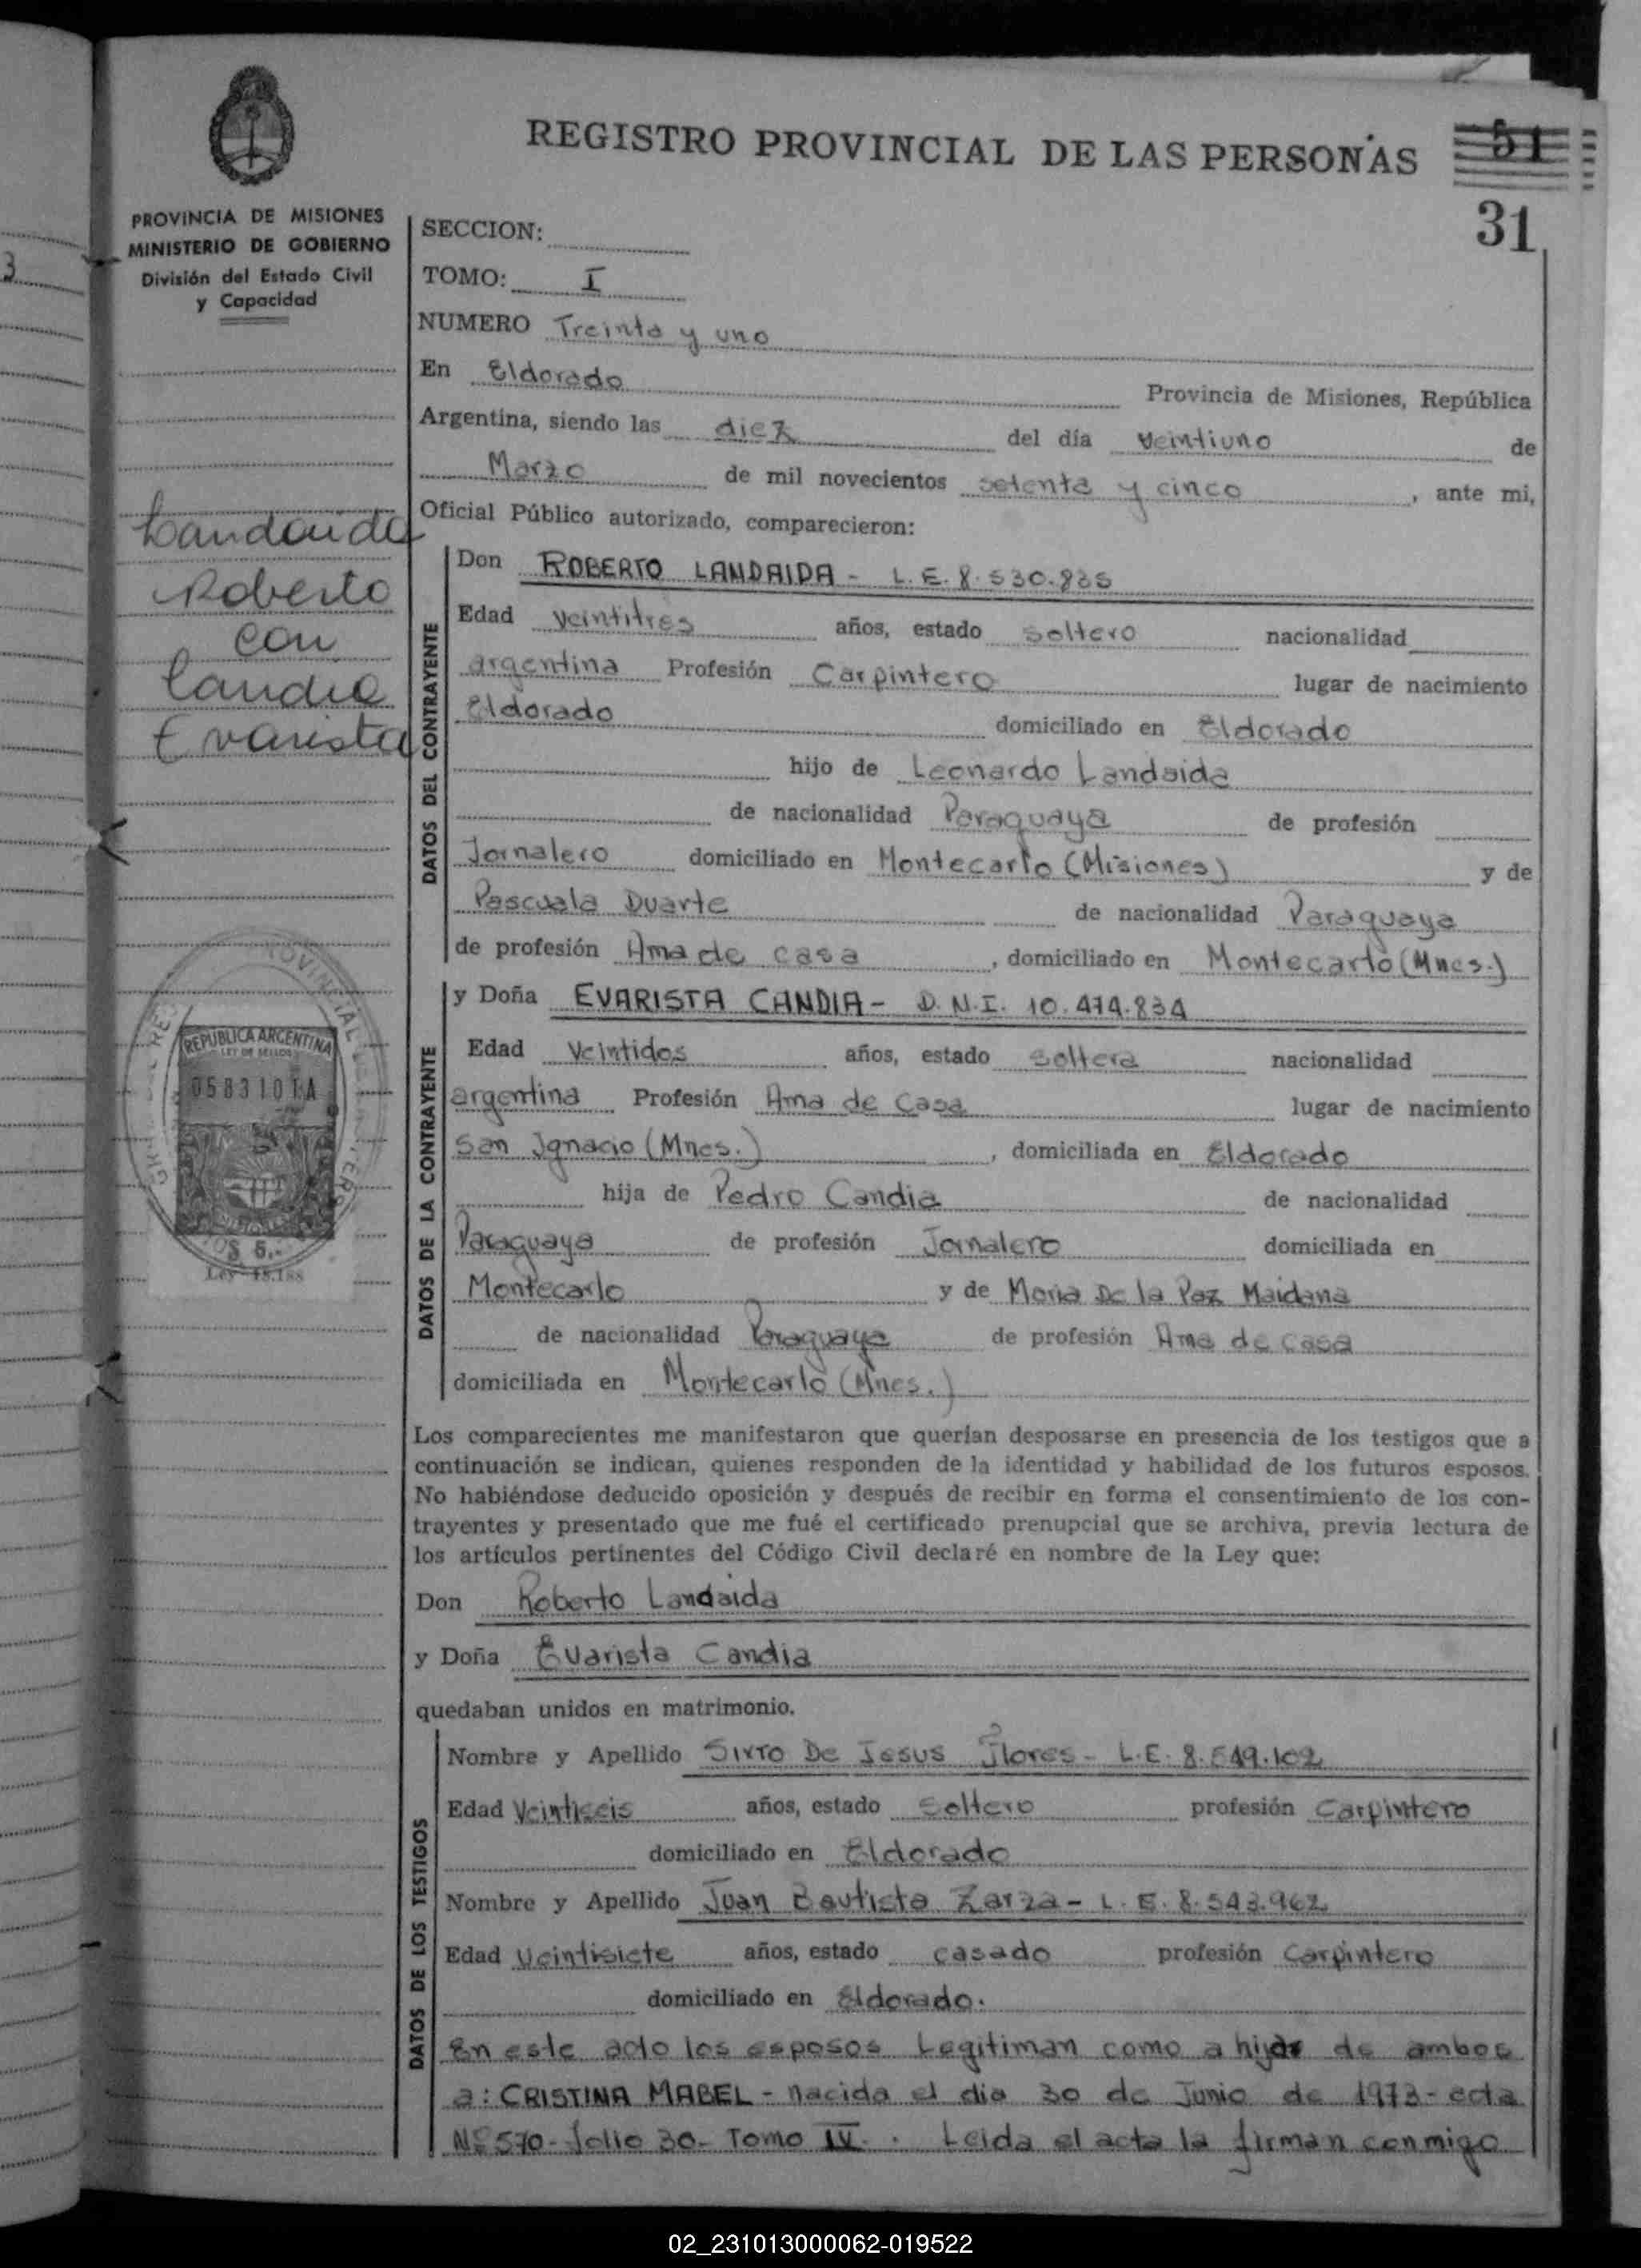 REGISTRO PROVINCIAL DE LAS PERSONAS
51
31
PROVINCIA DE MISIONES
MINISTERIO DE GOBIERNO
División del Estado Civil
y Capacidad
SECCION:
TOMO: I
NUMERO Treinta y uno
En Eldorado Provincia de Misiones, República
Argentina, siendo las diez del día veintiuno de
Marzo de mil novecientos setenta y cinco, ante mi,
Oficial Público autorizado, comparecieron:
Landaida
Roberto
con
Candia
Evarista
DATOS DEL CONTRAYENTE
Don ROBERTO LANDAIDA - L.E. 8.530.835
Edad veintitres años, estado soltero nacionalidad
argentina Profesión Carpintero lugar de nacimiento
Eldorado domiciliado en Eldorado
hijo de Leonardo Landaida
de nacionalidad Paraguaya de profesión
Jornalero domiciliado en Montecarlo (Misiones) y de
Pascuala Duarte de nacionalidad Paraguaya
de profesión Ama de casa, domiciliado en Montecarlo (Mnes.)
DATOS DE LA CONTRAYENTE
y Doña EVARISTA CANDIA - D.N.I. 10.474.834
Edad Veintidos años, estado soltera nacionalidad
argentina Profesión Ama de Casa lugar de nacimiento
San Ignacio (Mnes.), domiciliada en Eldorado
hija de Pedro Candia de nacionalidad
Paraguaya de profesión Jornalero domiciliada en
Montecarlo y de Maria De la Paz Maidana
de nacionalidad Paraguaya de profesión Ama de casa
domiciliada en Montecarlo (Mnes.)
REPUBLICA ARGENTINA
LEY DE SELLOS
0583101A
$ 5.-
Ley 18.188
Los comparecientes me manifestaron que querían desposarse en presencia de los testigos que a
continuación se indican, quienes responden de la identidad y habilidad de los futuros esposos.
No habiéndose deducido oposición y después de recibir en forma el consentimiento de los con-
trayentes y presentado que me fué el certificado prenupcial que se archiva, previa lectura de
los artículos pertinentes del Código Civil declaré en nombre de la Ley que:
Don Roberto Landaida
y Doña Evarista Candia
quedaban unidos en matrimonio.
DATOS DE LOS TESTIGOS
Nombre y Apellido Sixto De Jesus Flores - L.E. 8.549.102
Edad Veintiseis años, estado Soltero profesión Carpintero
domiciliado en Eldorado
Nombre y Apellido Juan Bautista Zarza - L.E. 8.543.962
Edad veintisiete años, estado casado profesión Carpintero
domiciliado en Eldorado.
En este acto los esposos Legitiman como a hijas de ambos
a: CRISTINA MABEL - nacida el dia 30 de Junio de 1973 - acta
Nº 570 - folio 30 - Tomo IV. Leida el acta la firman conmigo
02_231013000062-019522